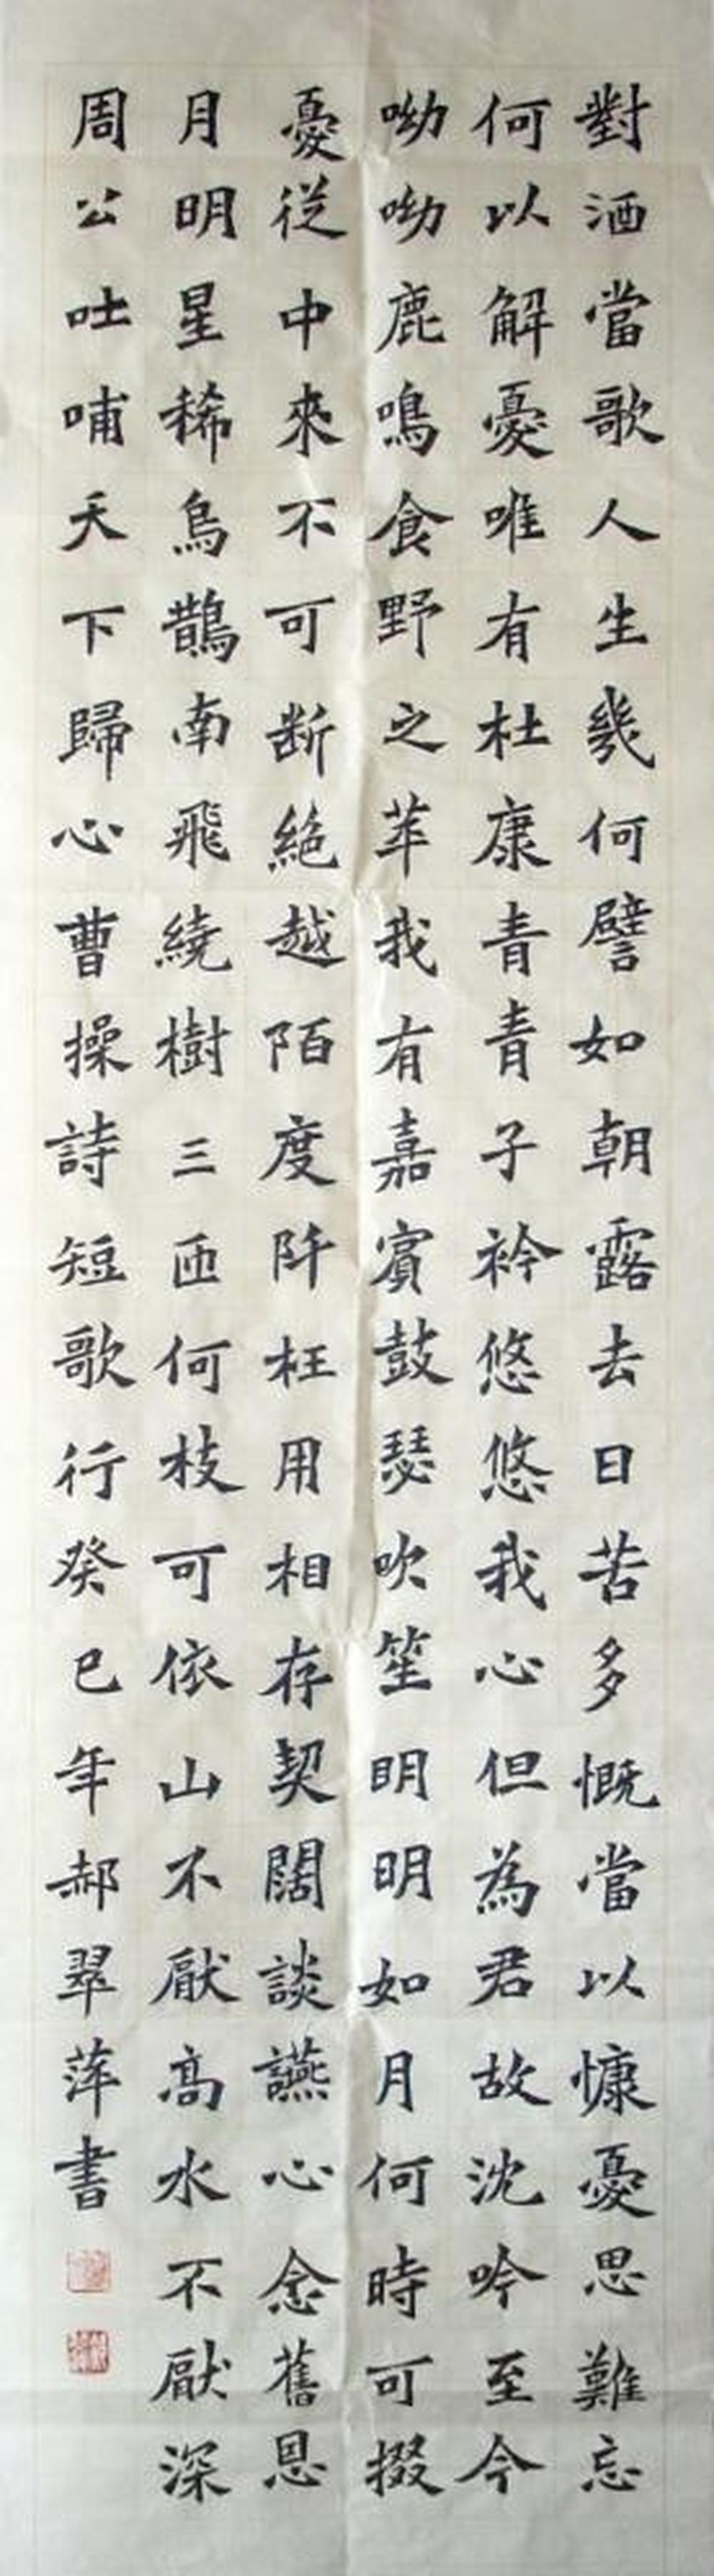 對酒當歌人生幾何譬如朝露去日苦多慨當以慷憂思難忘
何以解憂唯有杜康青青子衿悠悠我心但為君故沈吟至今
呦呦鹿鳴食野之苹我有嘉賓鼓瑟吹笙明明如月何時可掇
憂從中來不可断絕越陌度阡枉用相存契闊談讌心念舊恩
月明星稀烏鵲南飛繞樹三匝何枝可依山不厭高水不厭深
周公吐哺天下歸心曹操詩短歌行癸巳年郝翠萍書